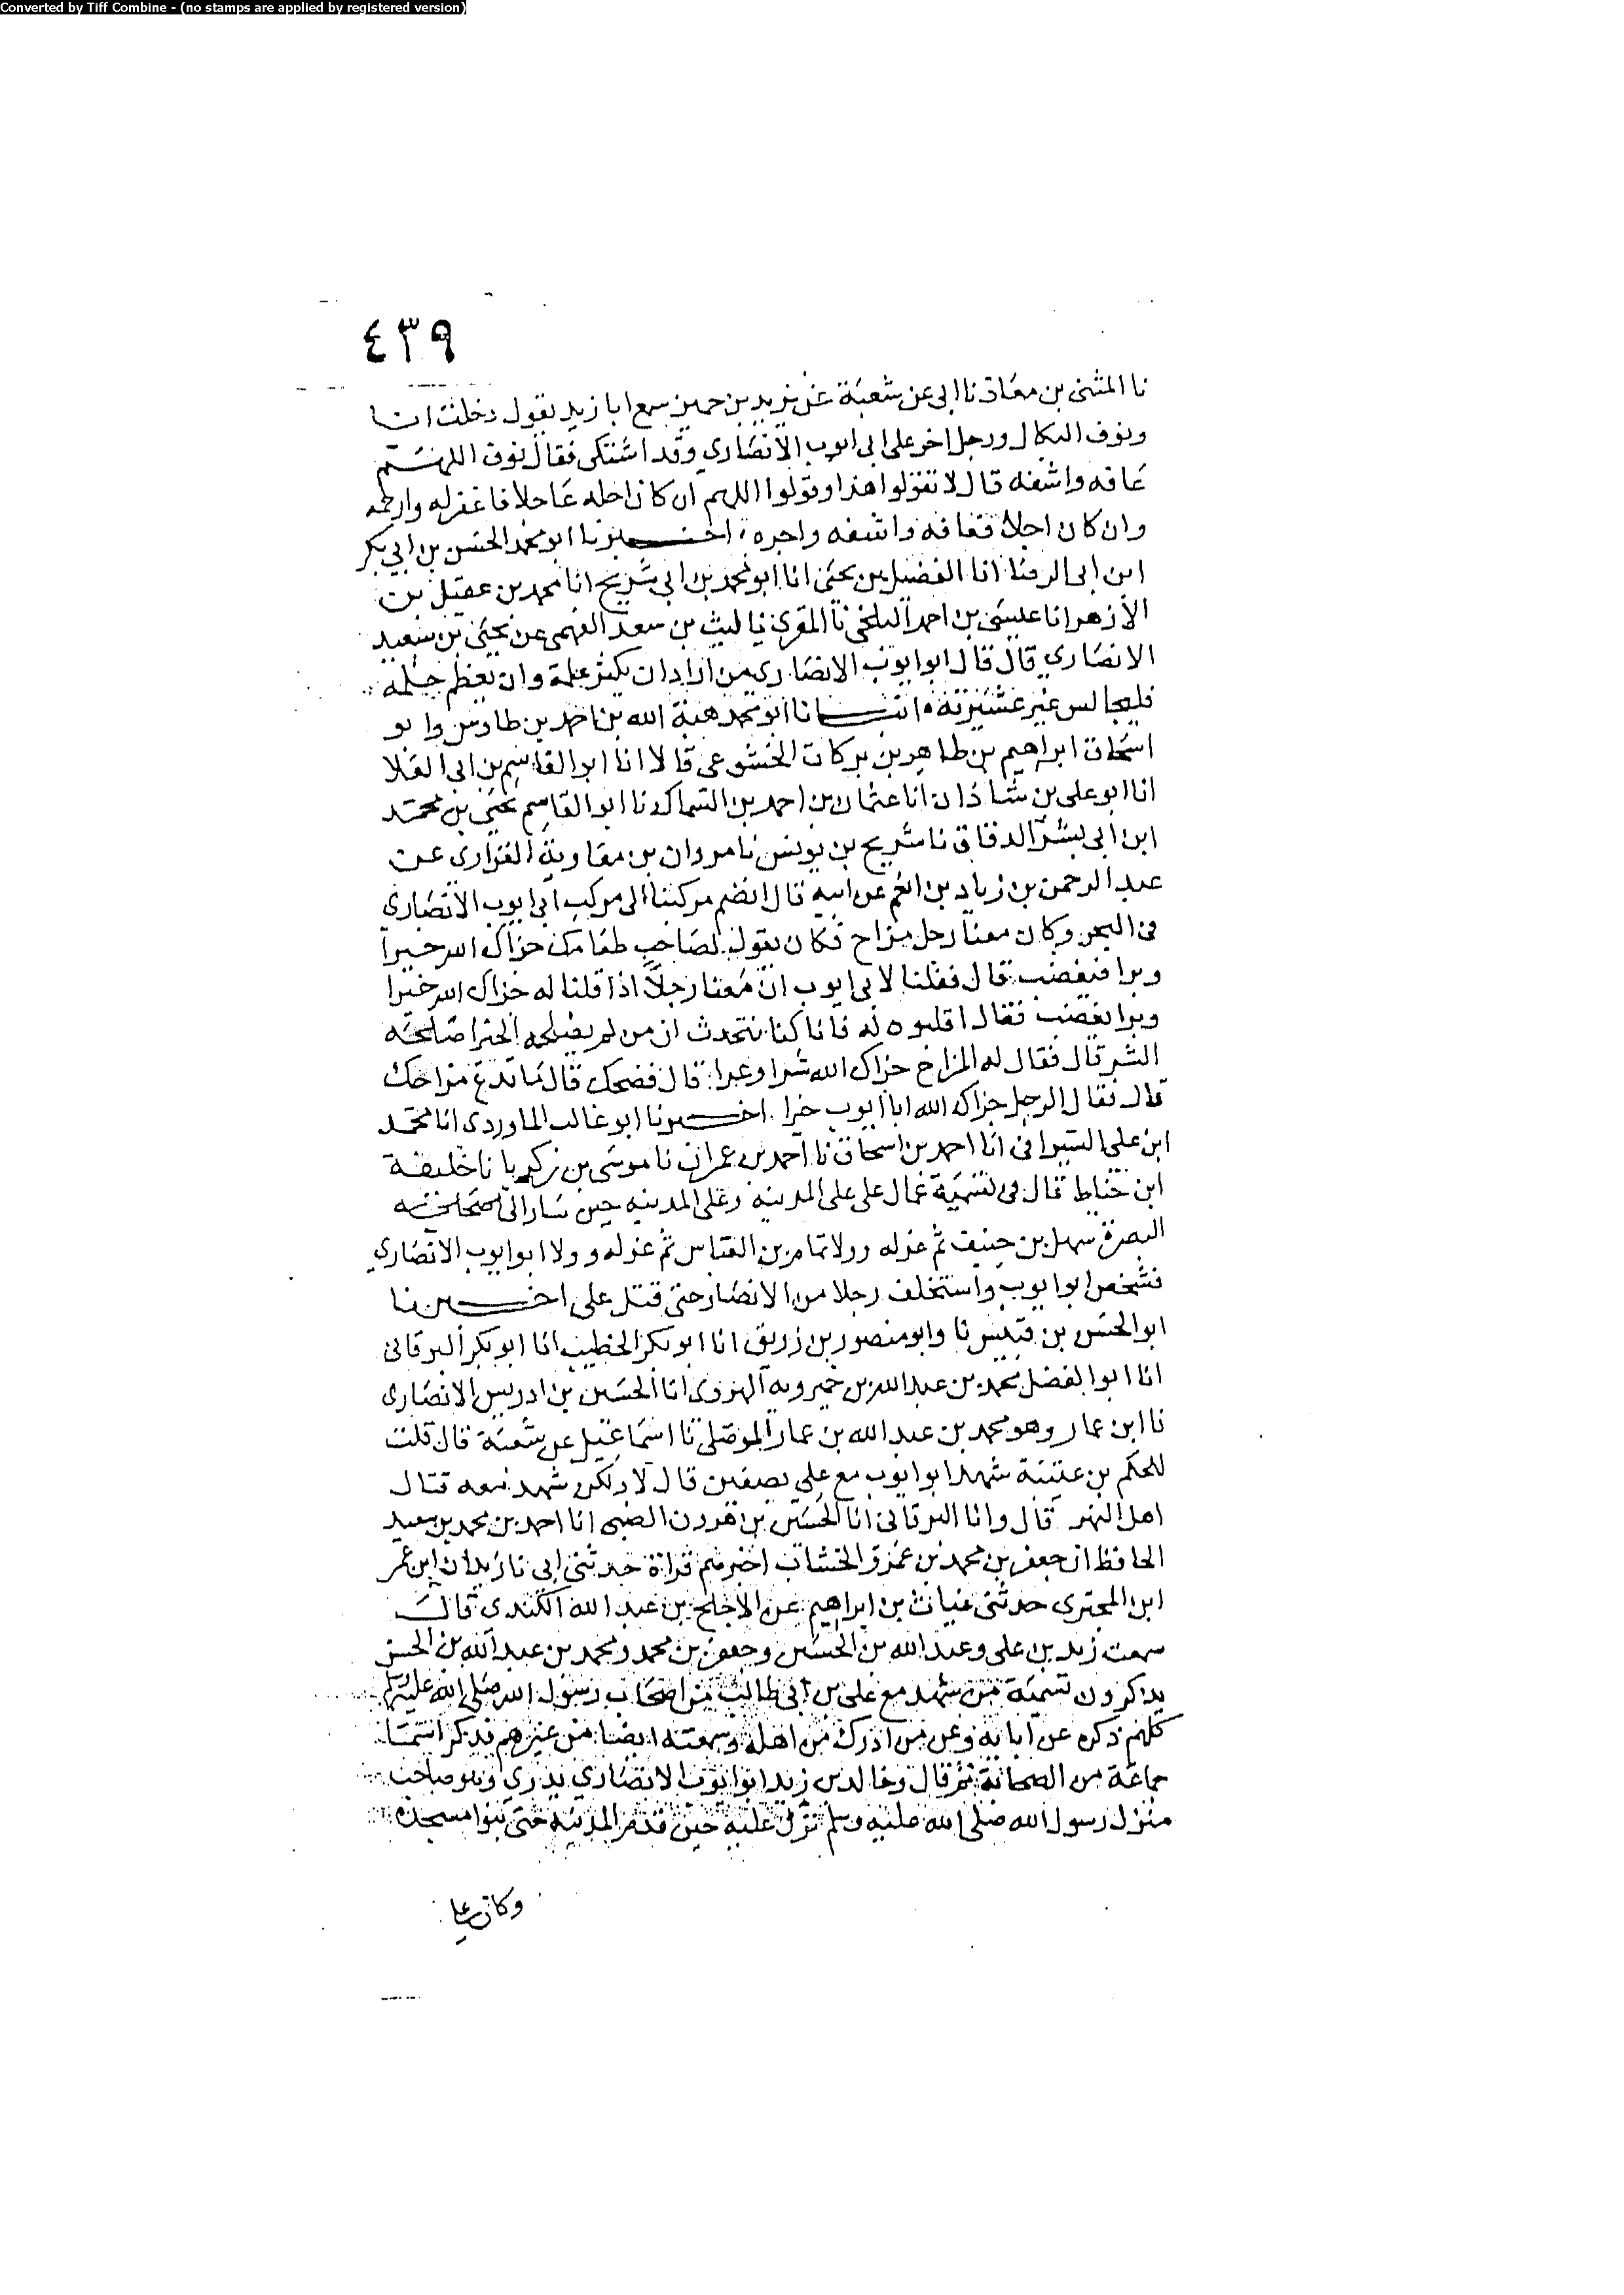 Converted by Tiff Combine - (no stamps are applied by registered version)
٤٣٩
نا المثنى بن معاذ نا ابى عن شعبة عن يزيد بن حمير سمع ابا زيد يقول دخلت انا
ونوف البكالى ورجل اخر على ابى ايوب الانصاري وقد اشتكى فقال نوف اللهم
عافه واشفه قال لا تقولوا هذا وقولوا اللهم ان كان اجله عاجلا فاغفر له وارحمه
وان كان اجلا فعافه واشفه واجره اخبرنا ابو محمد الحسن بن ابي بكر
ابن ابى الرضا انا الفضيل بن يحيى انا ابو محمد بن ابي شريح انا محمد بن عقيل بن
الازهر انا عيسى بن احمد البلخي نا المقري نا ليث بن سعد الفهمى عن يحيى بن سعيد
الانصاري قال قال ابو ايوب الانصاري من اراد ان يكثر علمه وان يعظم حلمه
فليجالس غير عشيرته انبانا ابو محمد هبة الله بن احمد بن طاوس وابو
اسحاق ابراهيم بن طاهر بن بركات الخشوعى قالا انا ابو القاسم بن ابى العلا
انا ابو على بن شاذان انا عثمان بن احمد بن السماك نا ابو القاسم يحيى بن محمد
ابن ابى بشر الدقاق نا شريح بن يونس نا مروان بن معاوية الفزارى عن
عبد الرحمن بن زياد بن انعم عن ابيه قال انضم مركبنا الى مركب ابى ايوب الانصارى
فى البحر وكان معنا رجل مزاح فكان يقول لصاحب طعامنا جزاك الله خيرا
وبرا فيغضب قال فقلنا لابى ايوب ان معنا رجلا اذا قلنا له جزاك الله خيرا
وبرا يغضب فقال اقلبوه له فانا كنا نتحدث ان من لم يصلحه الخير اصلحه
الشر قال فقال له المزاح جزاك الله شرا وعرا قال فضحك قال ما تدع مزاحك
قال فقال الرجل جزاك الله ابا ايوب خيرا اخبرنا ابو غالب الماوردى انا محمد
ابن على السيرافى انا احمد بن اسحاق نا احمد بن عمران نا موسى بن زكريا نا خليفة
ابن خياط قال فى تسمية عمال على على المدينه وعلى المدينه حين سار الى
البصرة سهل بن حنيف ثم عزله وولا تمام بن العباس ثم عزله وولا ابو ايوب الانصاري
فشخص ابو ايوب واستخلف رجلا من الانصار حتى قتل على اخبرنا
ابو الحسن بن قبيس نا وابو منصور بن زريق انا ابو بكر الخطيب انا ابو بكر البرقانى
انا ابو الفضل محمد بن عبد الله بن خميرويه الهروى انا الحسين بن ادريس الانصارى
نا ابن عمار وهو محمد بن عبد الله بن عمار الموصلى نا اسماعيل عن شعبة قال قلت
للحكم بن عتيبة شهد ابو ايوب مع على بصفين قال لا ولكن شهد معه قتال
اهل النهر قال وانا البرقانى انا الحسين بن هرون الضبى انا احمد بن محمد بن سعيد
الحافظ ان جعفر بن محمد بن عمرو الخشاب اخبرهم قراة حدثنى ابى نا زيدان ابن عمر
ابن البخترى حدثنى غياث بن ابراهيم عن الاجلح بن عبد الله الكندى قال
سمعت زيد بن على وعبد الله بن الحسن وجعفر بن محمد ومحمد بن عبد الله بن الحسن
يذكرون تسمية من شهد مع على بن ابى طالب من اصحاب رسول الله صلى الله عليه وسلم
كلهم ذكره عن ابايه وعن من ادرك من اهله وسمعته ايضا من غيرهم فذكر اسما
جماعة من الصحابة ثم قال وخالد بن زيد ابو ايوب الانصاري بدري وهو صاحب
منزل رسول الله صلى الله عليه وسلم نزل عليه حين قدم المدينة حتى بنوا مسجده
وكان على